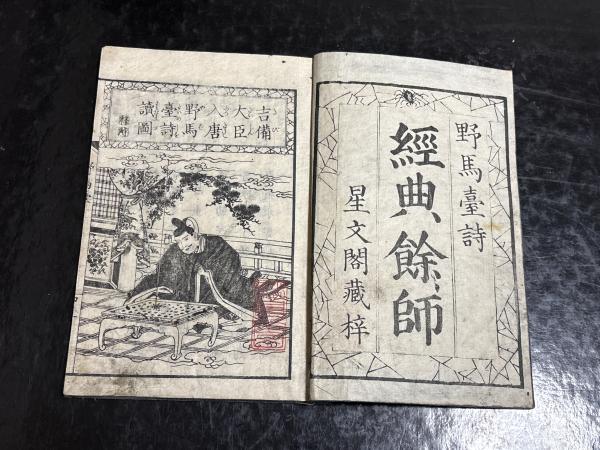 野馬臺詩
經典餘師
星文閣藏梓
吉備
大臣
入唐
野馬
臺詩
讀圖